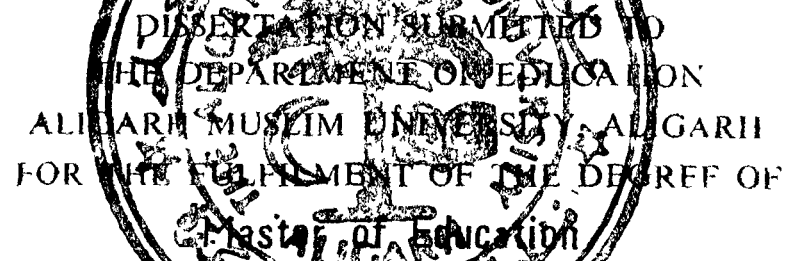 DISSERTATION SUBMITTED TO
THE DEPARTMENT OF EDUCATION
ALIGARH MUSLIM UNIVERSITY, ALIGARH
FOR THE FULFILMENT OF THE DEGREE OF
Master of Education